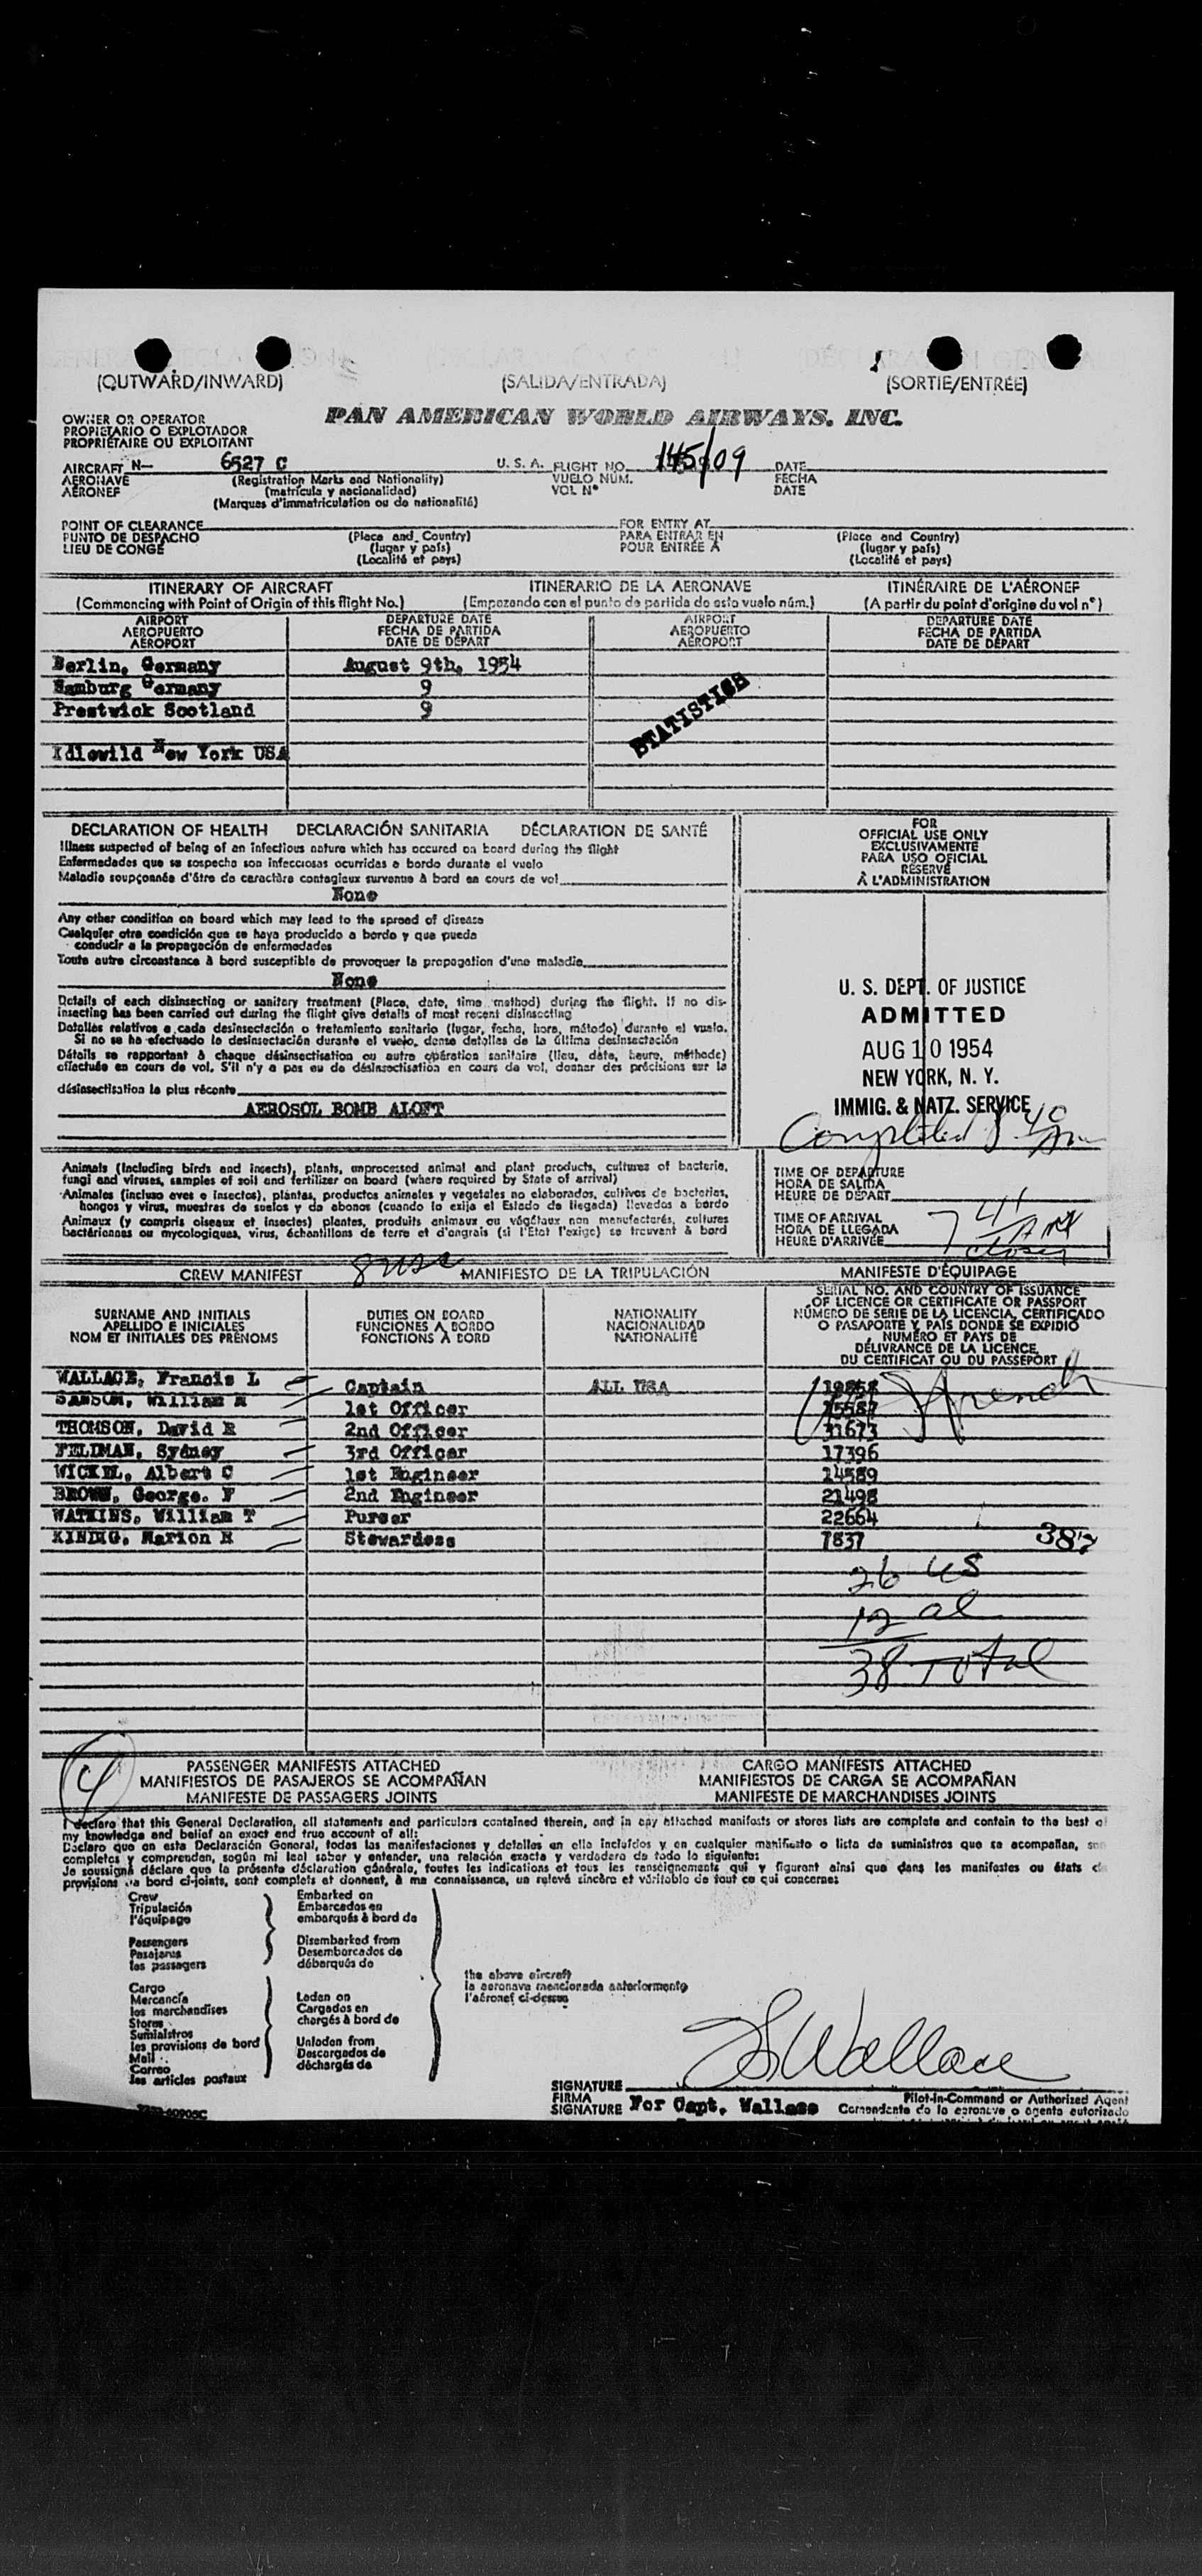 (OUTWARD/INWARD) (SALIDA/ENTRADA) (SORTIE/ENTRÉE)
OWNER OR OPERATOR
PROPIETARIO O EXPLOTADOR
PROPRIÉTAIRE OU EXPLOITANT
PAN AMERICAN WORLD AIRWAYS, INC.
AIRCRAFT N— 6527 C U. S. A. FLIGHT NO. 145/09 DATE
AERONAVE (Registration Marks and Nationality) VUELO NUM. FECHA
AÉRONEF (matrícula y nacionalidad) VOL Nº DATE
(Marques d'immatriculation ou de nationalité)
POINT OF CLEARANCE FOR ENTRY AT
PUNTO DE DESPACHO (Place and Country) PARA ENTRAR EN (Place and Country)
LIEU DE CONGÉ (lugar y país) POUR ENTRÉE A (lugar y país)
(Localité et pays) (Localité et pays)
ITINERARY OF AIRCRAFT ITINERARIO DE LA AERONAVE ITINÉRAIRE DE L'AÉRONEF
(Commencing with Point of Origin of this flight No.) (Empezando con el punto de partida de este vuelo núm.) (A partir du point d'origine du vol nº)
AIRPORT DEPARTURE DATE AIRPORT DEPARTURE DATE
AEROPUERTO FECHA DE PARTIDA AEROPUERTO FECHA DE PARTIDA
AÉROPORT DATE DE DÉPART AÉROPORT DATE DE DÉPART
Berlin, Germany August 9th, 1954
Hamburg Germany 9
Prestwick Scotland 9
STATISTICS
Idlewild New York USA
DECLARATION OF HEALTH DECLARACIÓN SANITARIA DÉCLARATION DE SANTÉ
Illness suspected of being of an infectious nature which has occured on board during the flight
Enfermedades que se sospecha son infecciosas ocurridas a bordo durante el vuelo
Maladie soupçonnée d'être de caractère contagieux survenue à bord en cours de vol
None
Any other condition on board which may lead to the spread of disease
Cualquier otra condición que se haya producido a bordo y que pueda
conducir a la propagación de enfermedades
Toute autre circonstance à bord susceptible de provoquer la propagation d'une maladie
None
Details of each disinsecting or sanitary treatment (Place, date, time method) during the flight. If no dis-
insecting has been carried out during the flight give details of most recent disinsecting
Detalles relativos a cada desinsectación o tratamiento sanitario (lugar, fecha, hora, método) durante el vuelo.
Si no se ha efectuado la desinsectación durante el vuelo, dense detalles de la última desinsectación
Détails se rapportant à chaque désinsectisation ou autre opération sanitaire (lieu, date, heure, méthode)
effectuée en cours de vol. S'il n'y a pas eu de désinsectisation en cours de vol, donner des précisions sur la
désinsectisation la plus récente
AEROSOL BOMB ALOFT
FOR
OFFICIAL USE ONLY
EXCLUSIVAMENTE
PARA USO OFICIAL
RÉSERVÉ
À L'ADMINISTRATION
U. S. DEPT. OF JUSTICE
ADMITTED
AUG 10 1954
NEW YORK, N. Y.
IMMIG. & NATZ. SERVICE
Completed 8 40 Am
Animals (including birds and insects), plants, unprocessed animal and plant products, cultures of bacteria,
fungi and viruses, samples of soil and fertilizer on board (where required by State of arrival)
Animales (incluso aves e insectos), plantas, productos animales y vegetales no elaborados, cultivos de bacterias,
hongos y virus, muestras de suelos y de abonos (cuando lo exija el Estado de llegada) llevados a bordo
Animaux (y compris oiseaux et insectes) plantes, produits animaux ou végétaux non manufacturés, cultures
bactériennes ou mycologiques, virus, échantillons de terre et d'angrais (si l'État l'exige) se trouvant à bord
TIME OF DEPARTURE
HORA DE SALIDA
HEURE DE DÉPART
TIME OF ARRIVAL
HORA DE LLEGADA
HEURE D'ARRIVÉE
7 41
CREW MANIFEST 8 usc MANIFIESTO DE LA TRIPULACIÓN MANIFESTE D'ÉQUIPAGE
SURNAME AND INITIALS
APELLIDO E INICIALES
NOM ET INITIALES DES PRÉNOMS
DUTIES ON BOARD
FUNCIONES A BORDO
FONCTIONS A BORD
NATIONALITY
NACIONALIDAD
NATIONALITÉ
SERIAL NO. AND COUNTRY OF ISSUANCE
OF LICENCE OR CERTIFICATE OR PASSPORT
NÚMERO DE SERIE DE LA LICENCIA, CERTIFICADO
O PASAPORTE Y PAÍS DONDE SE EXPIDIÓ
NUMÉRO ET PAYS DE
DÉLIVRANCE DE LA LICENCE,
DU CERTIFICAT OU DU PASSEPORT
WALLACE, Francis L Captain ALL USA 19858
SANSOM, William R 1st Officer 15587
THOMSON, David R 2nd Officer 31673
FELDMAN, Sydney 3rd Officer 17396
WICKEL, Albert C 1st Engineer 14589
BROWN, George. F 2nd Engineer 21498
WATKINS, William T Purser 22664
KINDIG, Marion R Stewardess 7837
French
387
26 US
12 al
38 Total
4
PASSENGER MANIFESTS ATTACHED CARGO MANIFESTS ATTACHED
MANIFIESTOS DE PASAJEROS SE ACOMPAÑAN MANIFIESTOS DE CARGA SE ACOMPAÑAN
MANIFESTE DE PASSAGERS JOINTS MANIFESTE DE MARCHANDISES JOINTS
I declare that this General Declaration, all statements and particulars contained therein, and in any attached manifests or stores lists are complete and contain to the best of
my knowledge and belief an exact end true account of all:
Declaro que en esta Declaración General, todas las manifestaciones y detalles en ella incluídos y en cualquier manifiesto o lista de suministros que se acompañan, son
completos y comprenden, según mi leal saber y entender, una relación exacta y verdadera de todo lo siguiente:
Je soussigné déclare que la présente déclaration générale, toutes les indications et tous les renseignements qui y figurent ainsi que dans les manifestes ou états de
provisions de bord ci-joints, sont complets et donnent, à ma connaissance, un relevé sincère et véritable de tout ce qui concerne:
Crew
Tripulación
l'équipage
Passengers
Pasajeros
les passagers
Cargo
Mercancía
les marchandises
Stores
Suministros
les provisions de bord
Mail
Correo
les articles postaux
Embarked on
Embarcados en
embarqués à bord de
Disembarked from
Desembarcados de
débarqués de
Laden on
Cargados en
chargés à bord de
Unladen from
Descargados de
déchargés de
the above aircraft
la aeronave mencionada anteriormente
l'aéronef ci-dessus
Wallace
SIGNATURE
FIRMA
SIGNATURE For Capt. Wallace
Pilot-in-Command or Authorized Agent
Comandante de la aeronave o agente autorizado